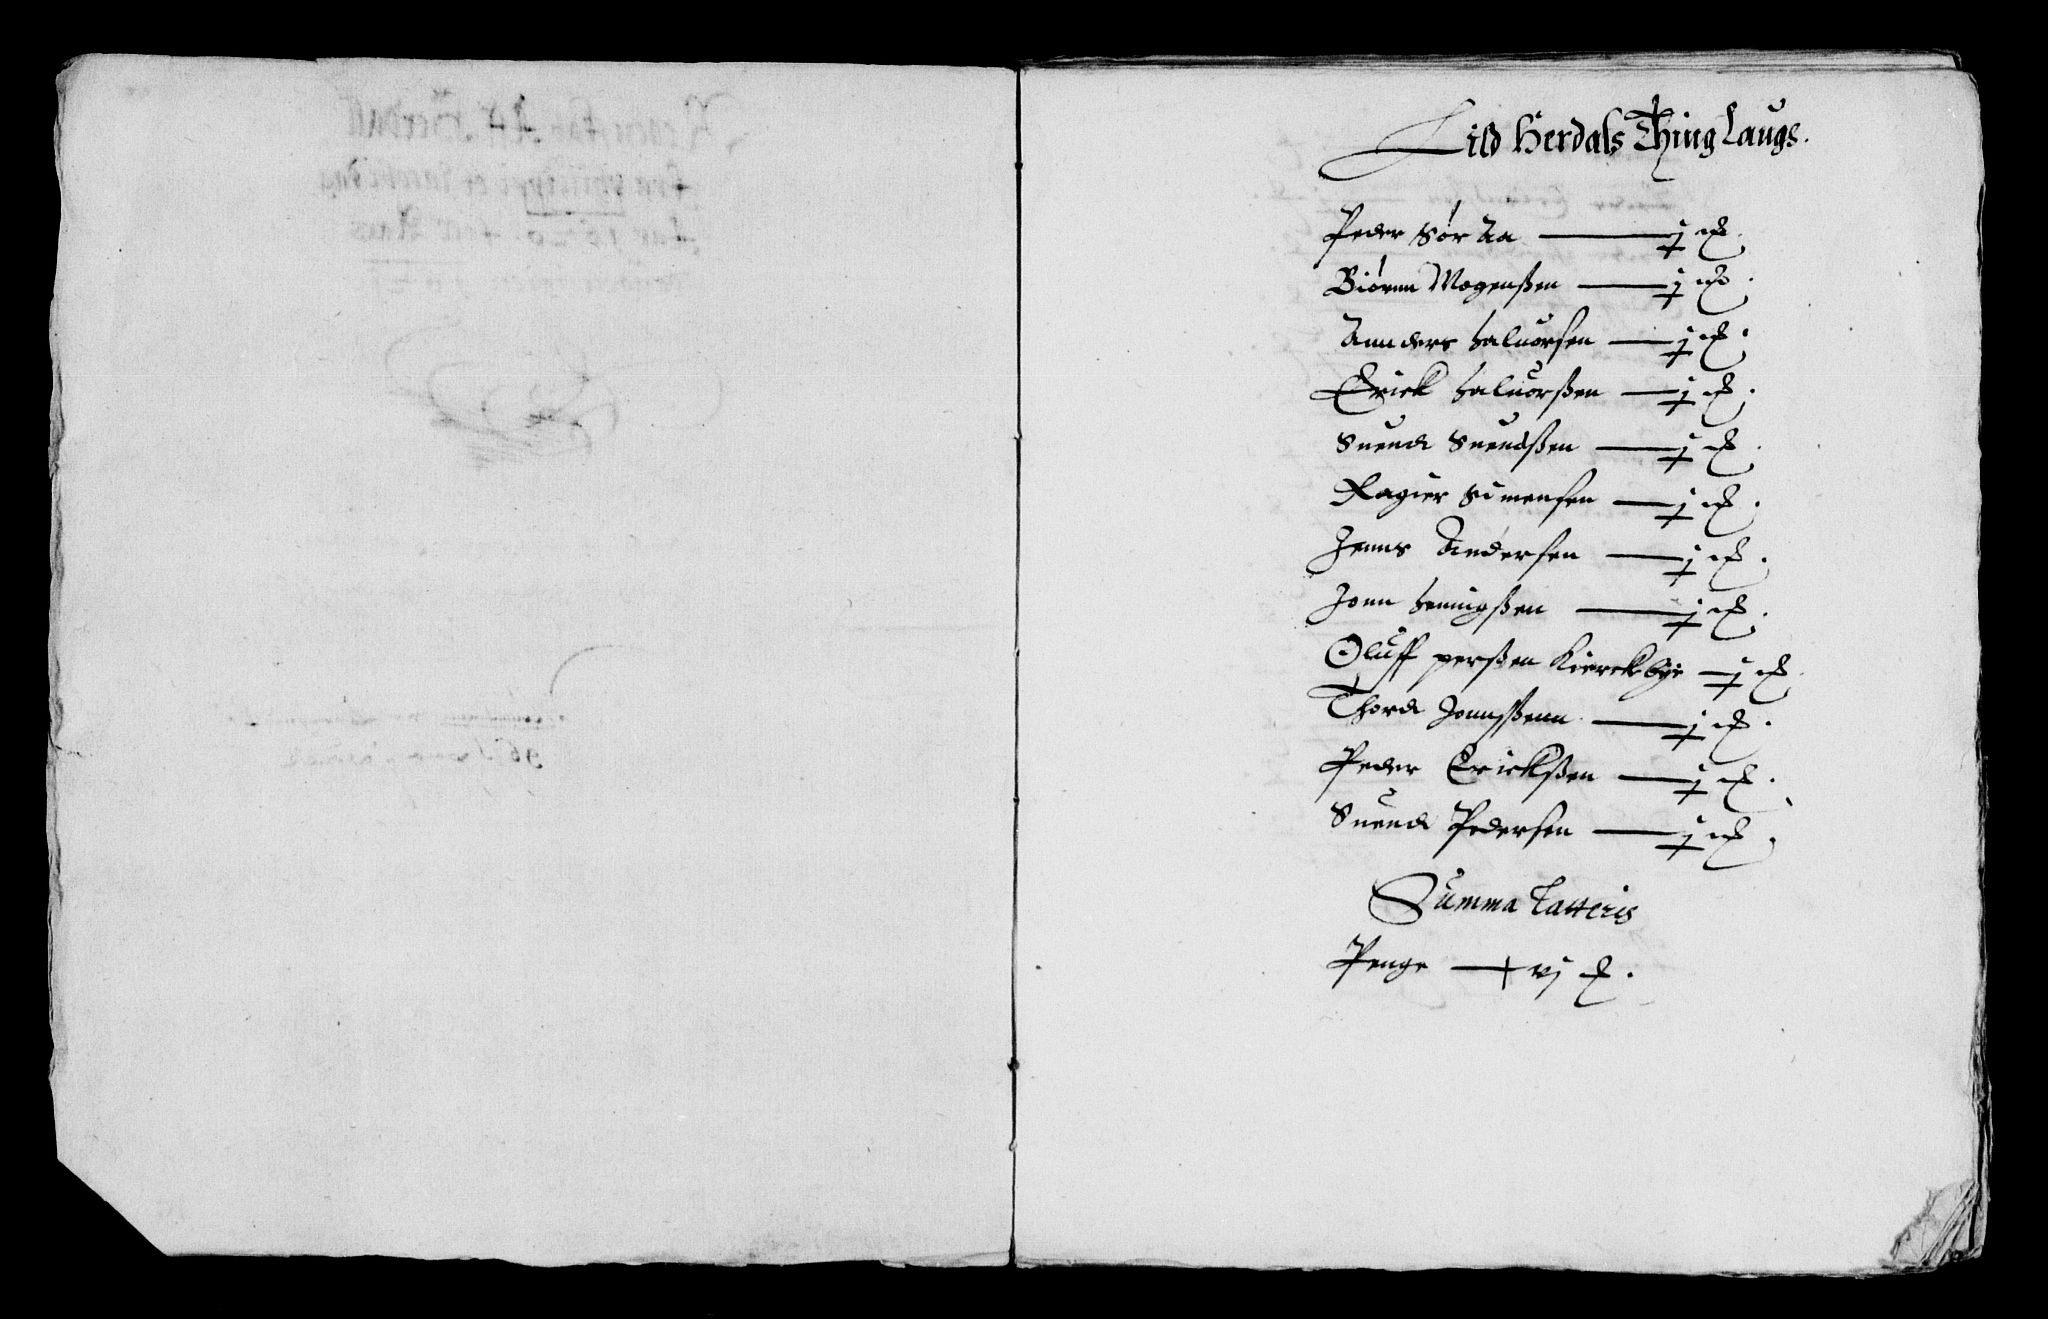 Lild Herdals Thing Laugs.
Peder Sør Aa — j
Biørnn Mogenßen — j
Annders Haluorsen — j
Erick Haluorßen — j
Suend Suendßen — j
Ragier Simensen — j
Jenns Andersen — j
Jonn Heningßen — j
Oluff perßen Kierckbye — j
Thord Jonnsßenn — j
Peder Erickßen — j
Suend Pedersen — j
Summa Latteris
Penge — vj